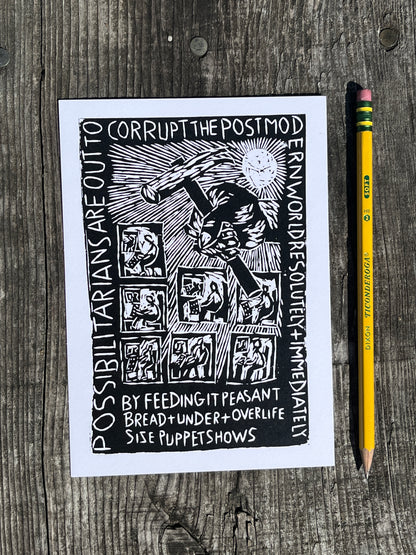 POSSIBILITARIANS ARE OUT TO
CORRUPT THE POSTMOD
ERN WORLD RESOLUTELY + IMMEDIATELY
BY FEEDING IT PEASANT
BREAD + UNDER + OVERLIFE
SIZE PUPPETSHOWS
DIXON TICONDEROGA
2 SOFT